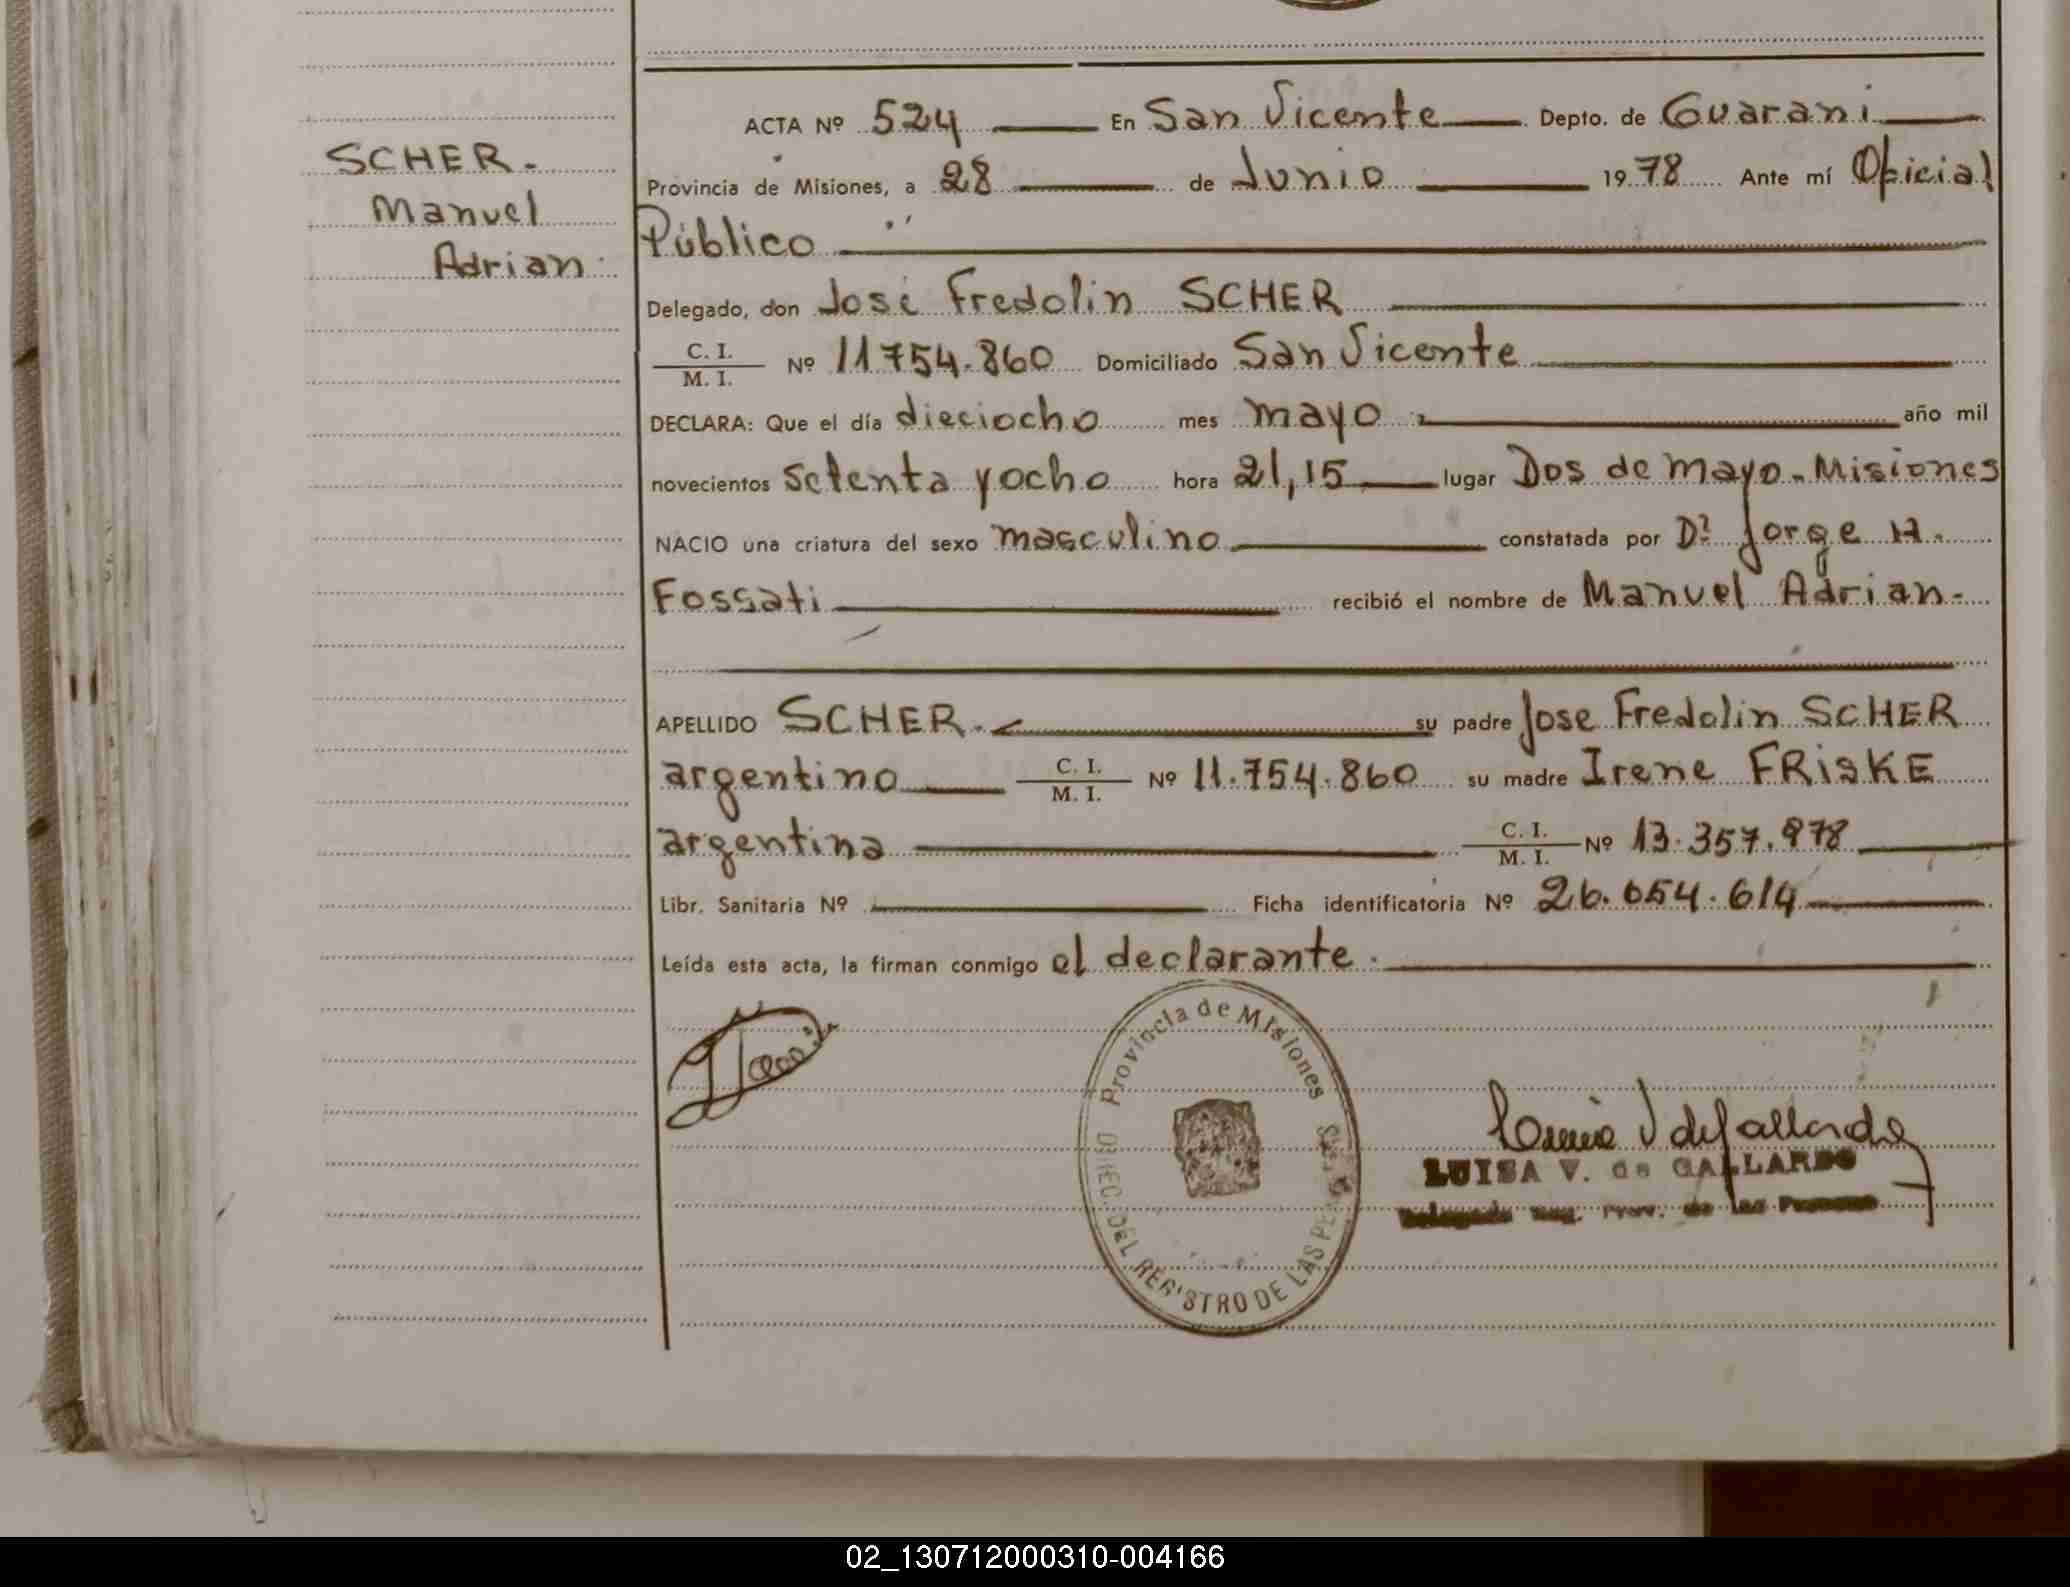 SCHER.
Manuel
Adrian
ACTA Nº 524 En San Vicente Depto. de Guarani
Provincia de Misiones, a 28 de Junio 1978 Ante mí Oficial
Público
Delegado, don José Fredolin SCHER
C. I.
M. I.
Nº 11754.860 Domiciliado San Vicente
DECLARA: Que el día dieciocho mes mayo año mil
novecientos setenta y ocho hora 21,15 lugar Dos de mayo - Misiones
NACIO una criatura del sexo masculino constatada por Dr Jorge H.
Fossati recibió el nombre de Manuel Adrian.
APELLIDO SCHER. su padre Jose Fredolin SCHER
argentino C. I.
M. I.
Nº 11.754.860 su madre Irene FRISKE
argentina C. I.
M. I.
Nº 13.357.978
Libr. Sanitaria Nº Ficha identificatoria Nº 26.654.614
Leída esta acta, la firman conmigo el declarante.
Provincia de Misiones
DIREC. DEL REGISTRO DE LAS
LUISA V. de GALLARDO
Delegada Reg. Prov. de las Personas
02_130712000310-004166